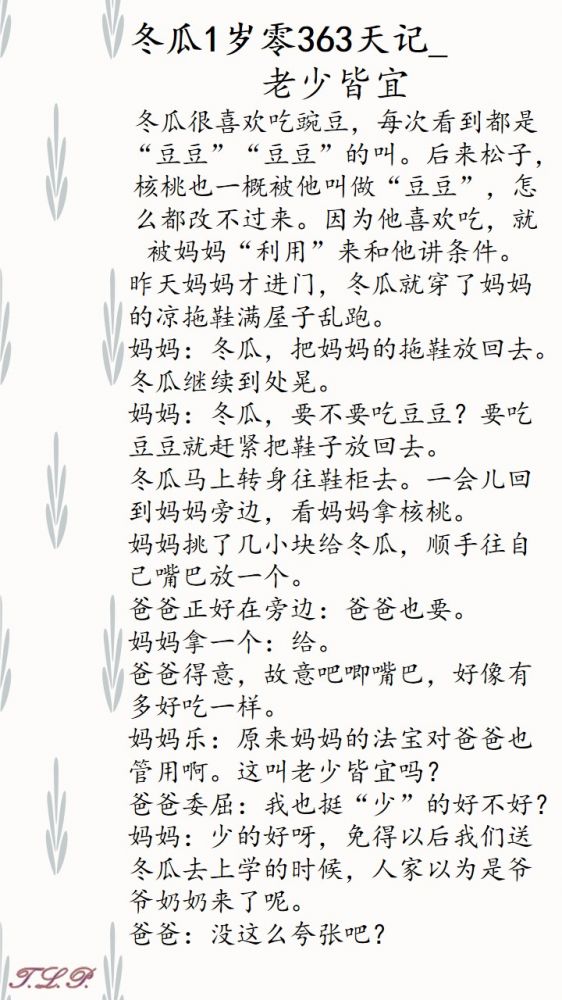 冬瓜1岁零363天记_
老少皆宜
冬瓜很喜欢吃豌豆，每次看到都是
“豆豆”“豆豆”的叫。后来松子，
核桃也一概被他叫做“豆豆”，怎
么都改不过来。因为他喜欢吃，就
被妈妈“利用”来和他讲条件。
昨天妈妈才进门，冬瓜就穿了妈妈
的凉拖鞋满屋子乱跑。
妈妈：冬瓜，把妈妈的拖鞋放回去。
冬瓜继续到处晃。
妈妈：冬瓜，要不要吃豆豆？要吃
豆豆就赶紧把鞋子放回去。
冬瓜马上转身往鞋柜去。一会儿回
到妈妈旁边，看妈妈拿核桃。
妈妈挑了几小块给冬瓜，顺手往自
己嘴巴放一个。
爸爸正好在旁边：爸爸也要。
妈妈拿一个：给。
爸爸得意，故意吧唧嘴巴，好像有
多好吃一样。
妈妈乐：原来妈妈的法宝对爸爸也
管用啊。这叫老少皆宜吗？
爸爸委屈：我也挺“少”的好不好？
妈妈：少的好呀，免得以后我们送
冬瓜去上学的时候，人家以为是爷
爷奶奶来了呢。
爸爸：没这么夸张吧？
T.L.P.